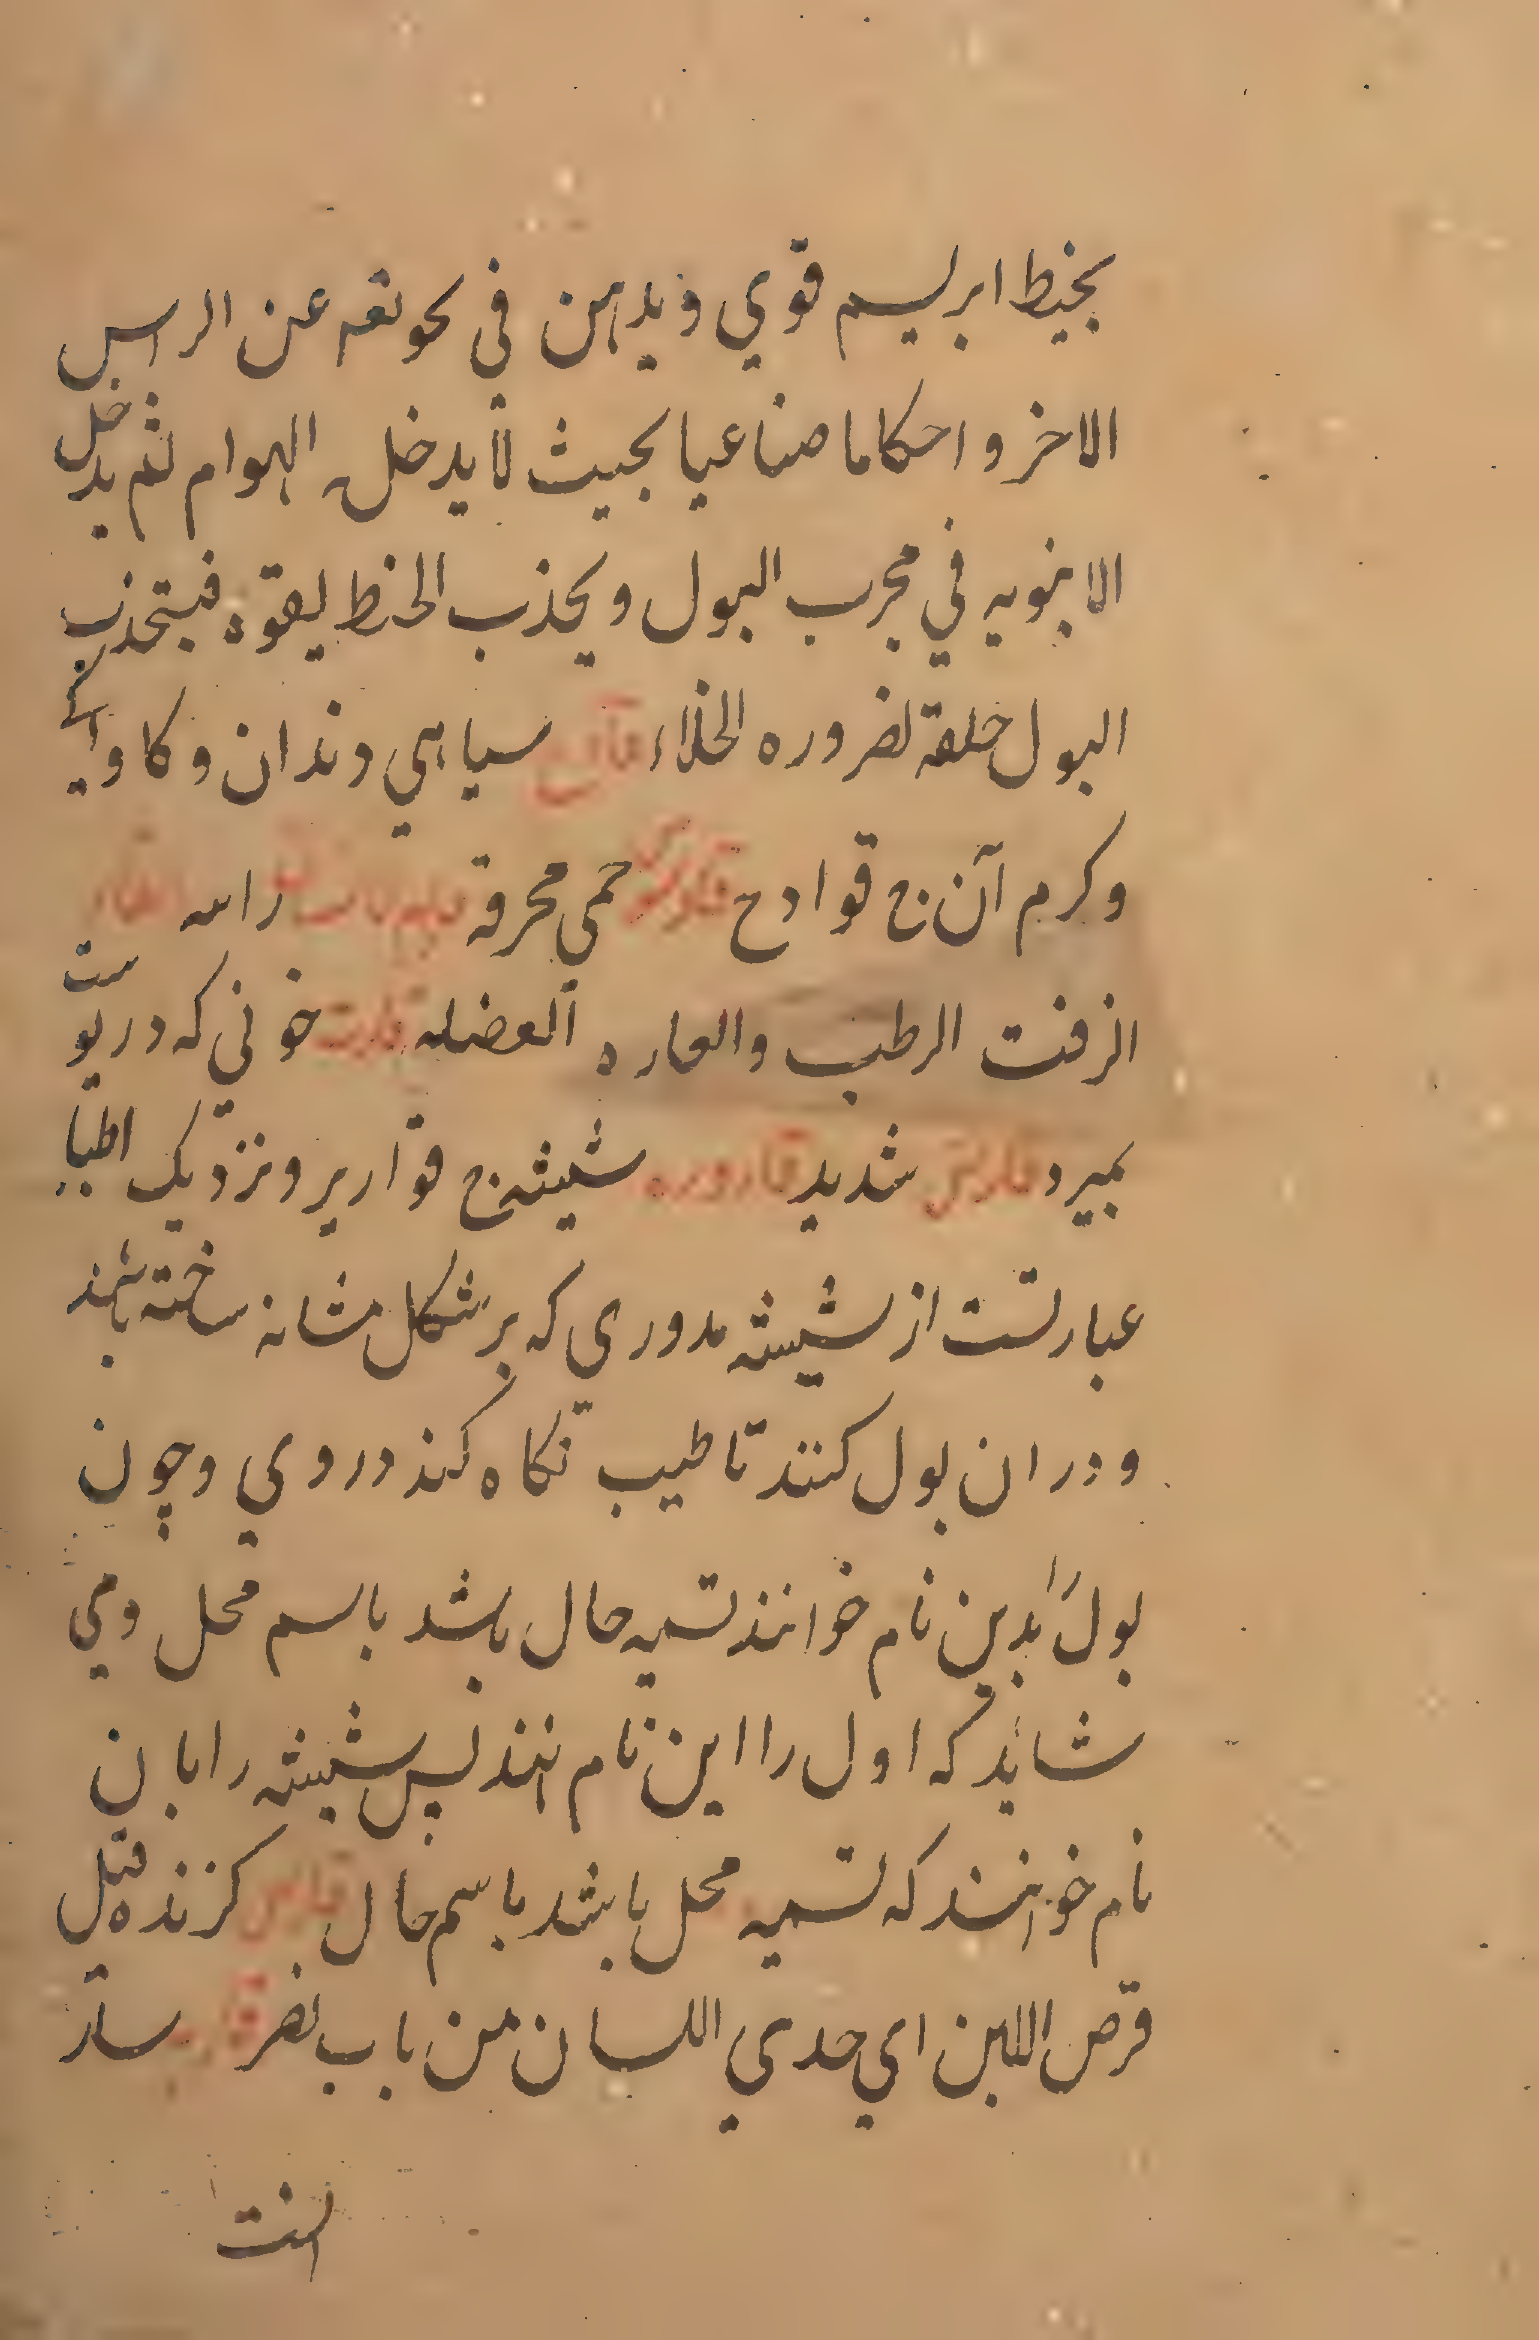 بخيط ابريسم قوي ويدهن في نحو نقه عن الراس
الاخر و احكاما صناعيا بحيث لا يدخل الهوام ثم يدخل
الانبويه في مجرب البول و يجذب الخيط بقوة فيتجذب
البول خلفة لضروره الخلاء قادح سياهي دندان و كاواكي
وكرم آن ج قوادح حمي محرقة را سه
الزفت الرطب والعاره العضله قارت خوني كه در پوست
بميرد قارس شديد قاروره شيشه ج قوارير و نزديك اطبا
عبارتست از شيشه مدوري كه بر شكل مثانه ساخته باشند
و دران بول كنند تا طبيب نكاه كند در وي و چون
بول را بدين نام خوانند تسميه حال باشد باسم محل و مي
شايد كه اول را اين نام نهند پس شيشه را بان
نام خوانند كه تسميه محل باشد باسم حال قارص كزنده قيل
قرص اللبن اي حدي اللسان من باب نصر ستار
است